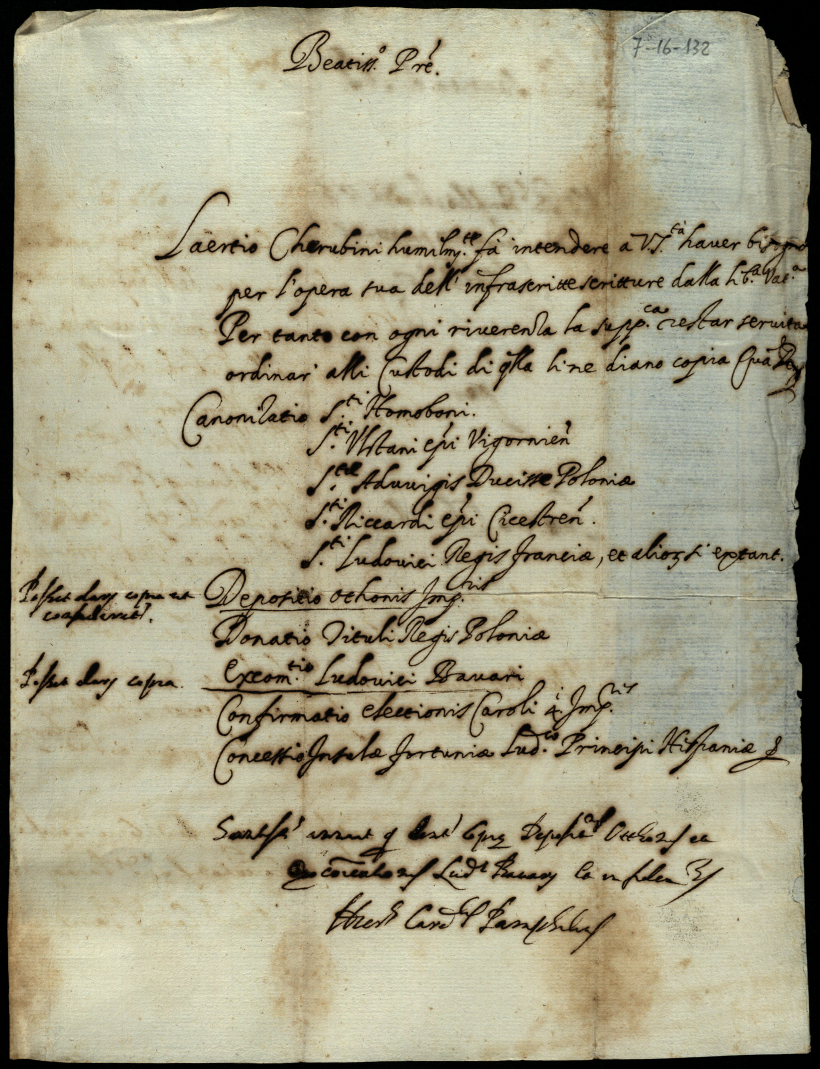 7-16-132
Beatiss.o Pr̃e.
Laertio Cherubini humilm.te fà intendere à V.S.tà haver bisogno
per l'opera sua dell' infrascritte scritture dalla lib.a Vat.a
Per tanto con ogni riverenza la supp.ca restar servita
ordinar' alli Custodi di q̃lla li ne diano copia
Canonizatio S.ti Homoboni.
S.ti Vlstani ep̃i Vigornien̄
S.tæ Aduuigis Ducisse Poloniæ
S.ti Riccardi ep̃i Cicestren̄.
S.ti Ludovici Regis Franciæ, et alioꝝ si extant.
Posset dari copia et
Depositio Othonis Imp.ris
Donatio Tituli Regis Poloniæ
Posset dari copia.
Excom.tio Ludovici Bavari
Confirmatio electionis Caroli 4.i Imp.ris
Concessio Insulæ fortuniæ Lud.co Principi Hispaniæ
Depositio.s Othonis et
Lud.i Bavari
Card.lis Pamphilius